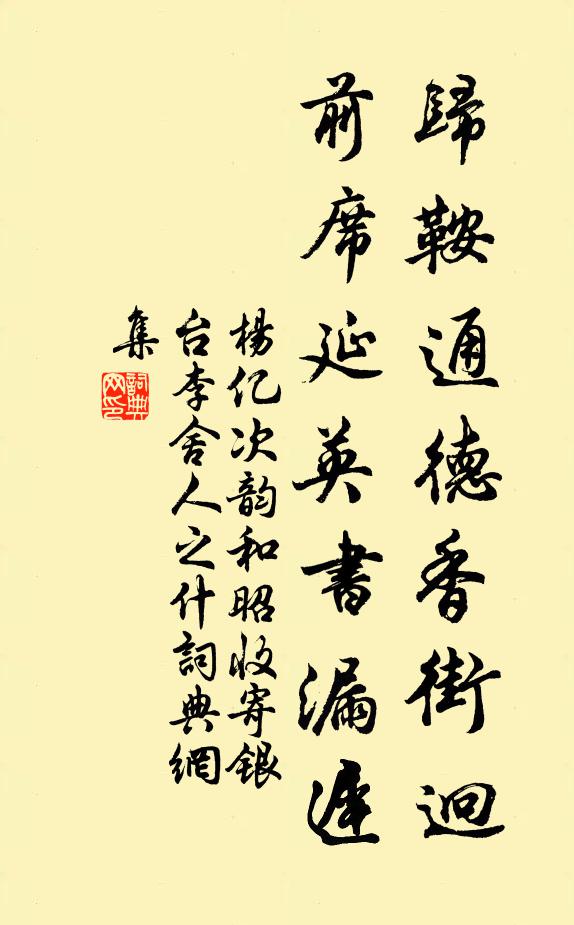 歸鞍通德香街迴
前席延英書漏遲
楊亿次韵和昭收寄銀
台李舍人之什詞典網
集
詞典网印